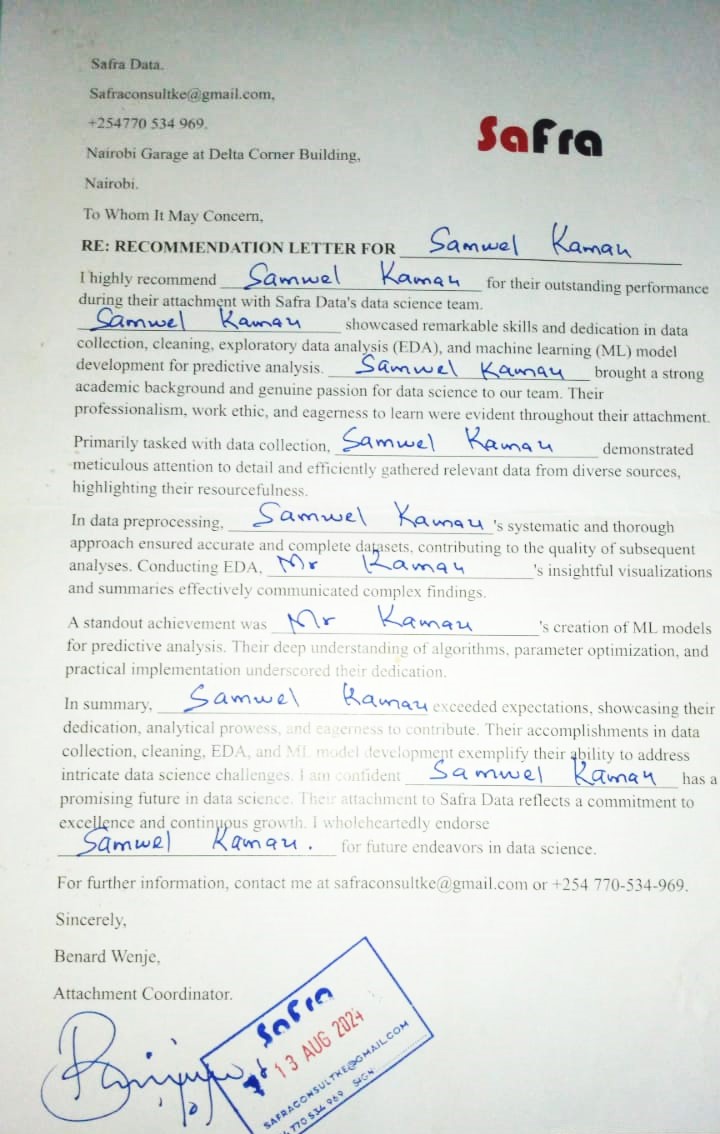 Safra Data.
Safraconsultke@gmail.com,
+254770 534 969.
SaFra
Nairobi Garage at Delta Corner Building,
Nairobi.
To Whom It May Concern,
RE: RECOMMENDATION LETTER FOR Samwel Kamau
I highly recommend Samwel Kamau for their outstanding performance
during their attachment with Safra Data's data science team.
Samwel Kamau showcased remarkable skills and dedication in data
collection, cleaning, exploratory data analysis (EDA), and machine learning (ML) model
development for predictive analysis. Samwel Kamau brought a strong
academic background and genuine passion for data science to our team. Their
professionalism, work ethic, and eagerness to learn were evident throughout their attachment.
Primarily tasked with data collection, Samwel Kamau demonstrated
meticulous attention to detail and efficiently gathered relevant data from diverse sources,
highlighting their resourcefulness.
In data preprocessing, Samwel Kamau 's systematic and thorough
approach ensured accurate and complete datasets, contributing to the quality of subsequent
analyses. Conducting EDA, Mr Kamau 's insightful visualizations
and summaries effectively communicated complex findings.
A standout achievement was Mr Kamau 's creation of ML models
for predictive analysis. Their deep understanding of algorithms, parameter optimization, and
practical implementation underscored their dedication.
In summary, Samwel Kamau exceeded expectations, showcasing their
dedication, analytical prowess, and eagerness to contribute. Their accomplishments in data
collection, cleaning, EDA, and ML model development exemplify their ability to address
intricate data science challenges. I am confident Samwel Kamau has a
promising future in data science. Their attachment to Safra Data reflects a commitment to
excellence and continuous growth. I wholeheartedly endorse
Samwel Kamau. for future endeavors in data science.
For further information, contact me at safraconsultke@gmail.com or +254 770-534-969.
Sincerely,
Benard Wenje,
Attachment Coordinator.
SaFra
13 AUG 2024
SAFRACONSULTKE@GMAIL.COM
770 534 969 SIGN